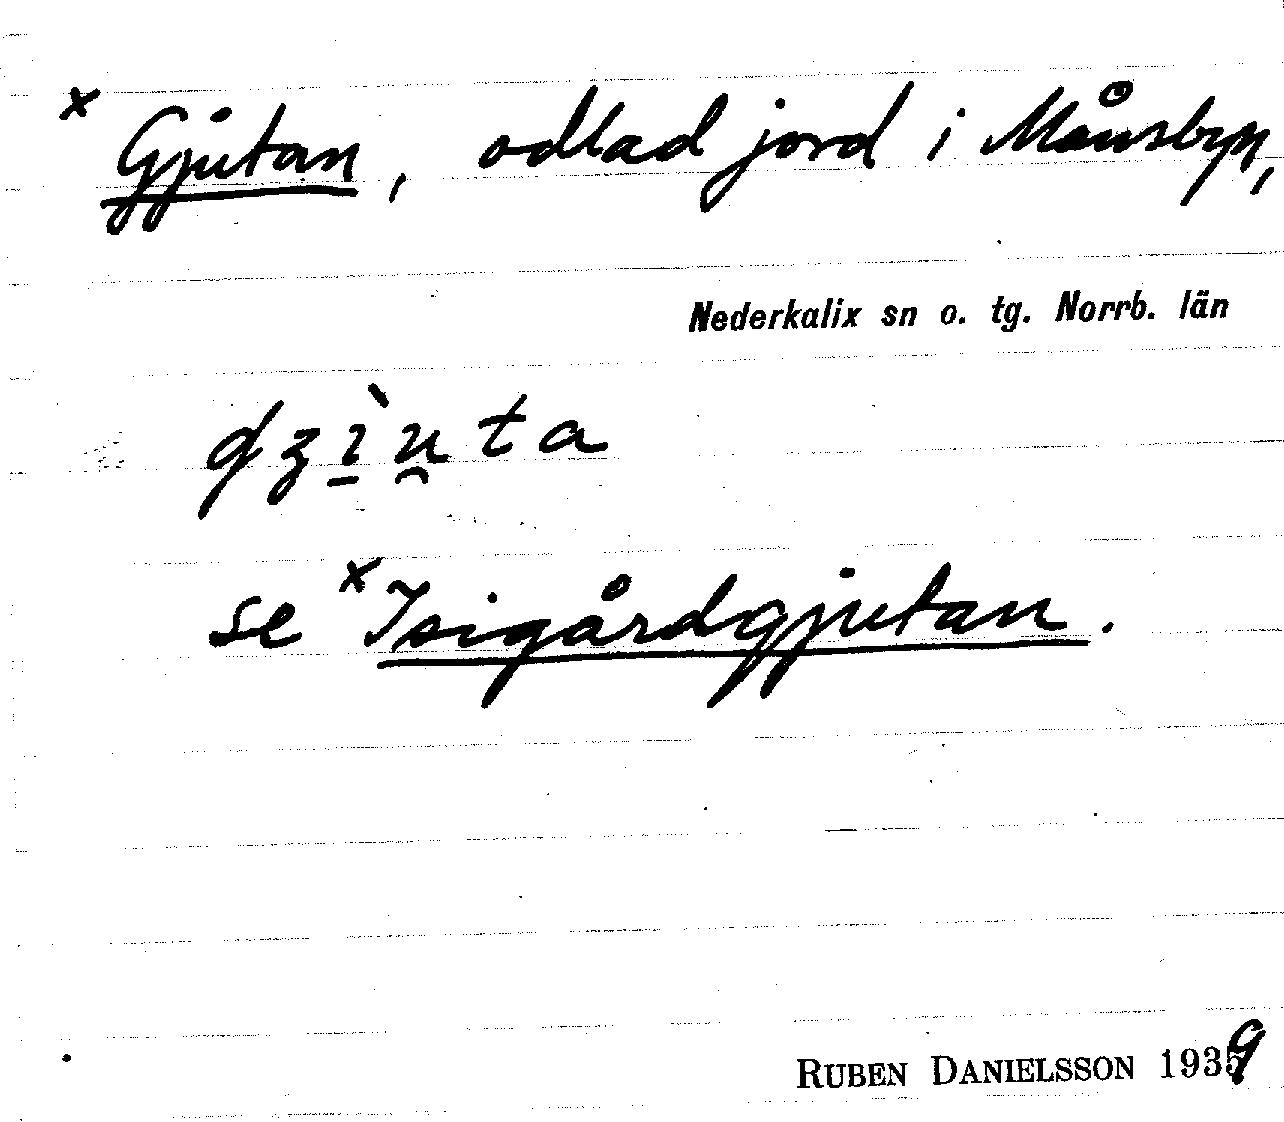 x Gjutan, odlad jord i Månsbyn,
Nederkalix sn o. tg. Norrb. län
se x Isigårdgjutan.
RUBEN DANIELSSON 1939